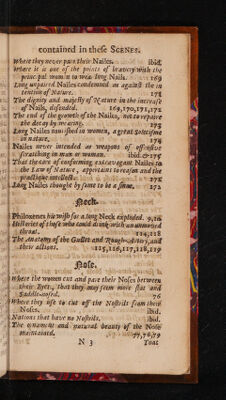 contained in these SCENES.
Where they never pare their Nailes. ibid.
Where it is one of the points of bravery with the
principal women to wear long Nails. 169
Long unpaired Nailes condemned as against the in
tention of Nature. 171
The dignity and majesty of Nature in the increase
of Nails, defended. 169,170,171,172
The end of the growth of the Nailes, not to repaire
the decay by wearing. 173
Long Nailes nourished in women, a great solecisme
in nature. 174
Nailes never intended as weapons of offensive
scratching in man or woman. ibid. & 175
That the care of conforming extravagant Nailes to
the Law of Nature, appertains to reason and the
practique intellect. 172
Long Nailes thought by some to be a sinne. 172
Neck.
Philoxenes his wish for a long Neck exploded. 9,10
Histories of those who could drink with an unmoved
throat. 124,128
The Anatomy of the Gullet and Rough-Artery, and
their actions. 125,126,127,128,129
Nose.
Where the women cut and pare their Noses between
their Eyes, that they may seem more flat and
Saddle-nosed. 76
Where they use to cut off the Nostrils from their
Noses. ibid.
Nations that have no Nostrils. ibid.
The ornament and natural beauty of the Nose
maintained. 77,78,79
N 3 That